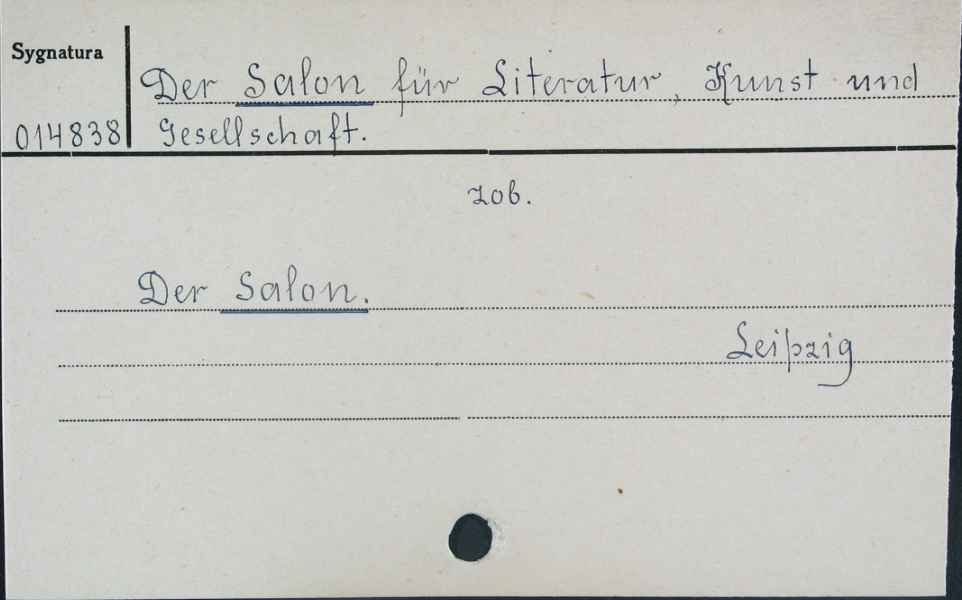 Sygnatura
Der Salon für Literatur, Kunst und
014838 Gesellschaft.
zob.
Der Salon.
Leipzig